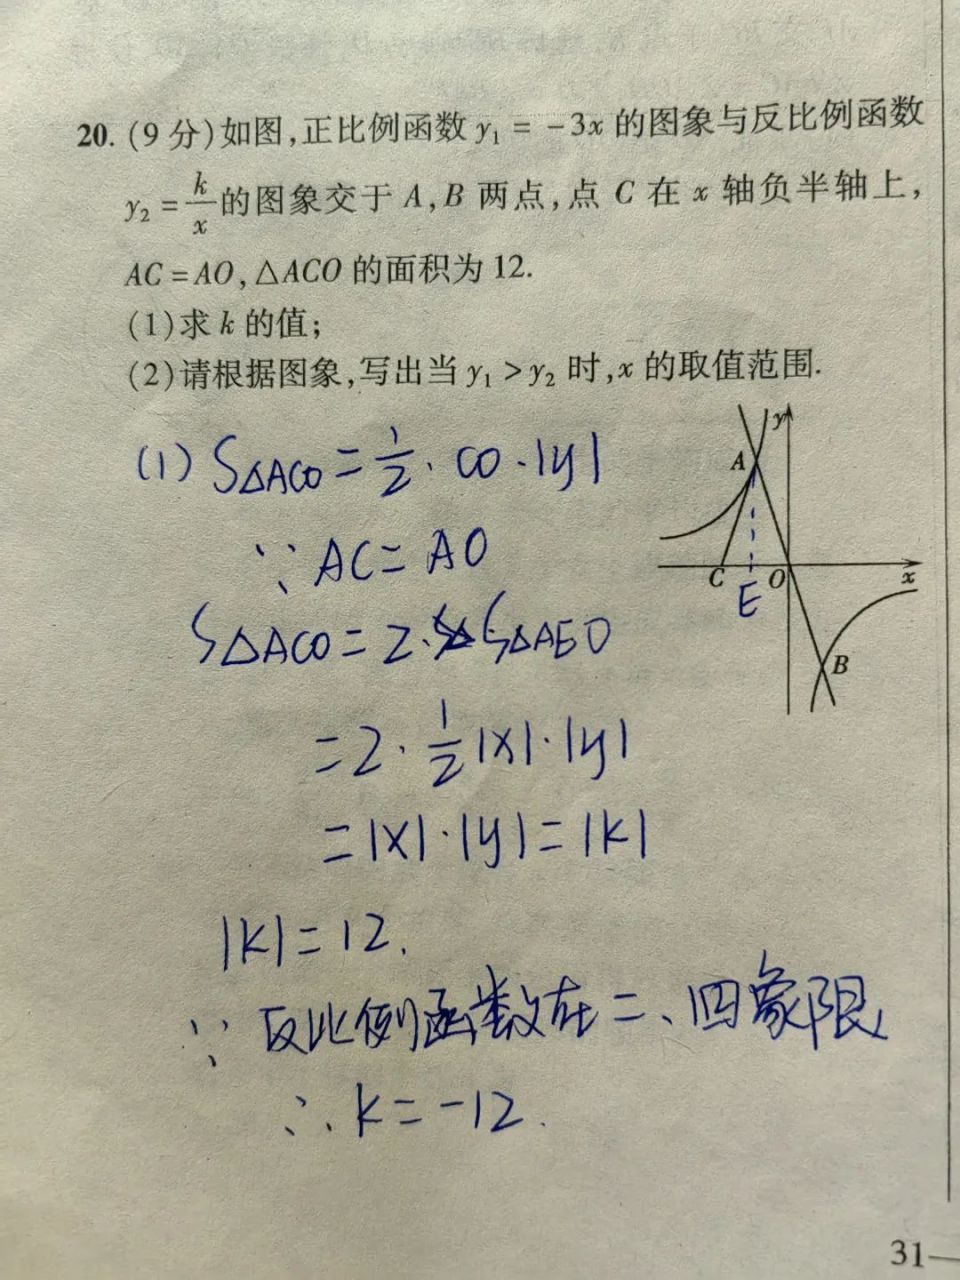 20. (9 分)如图,正比例函数 y₁ = -3x 的图象与反比例函数
y₂ = k/x 的图象交于 A,B 两点,点 C 在 x 轴负半轴上,
AC = AO,△ACO 的面积为 12.
(1)求 k 的值;
(2)请根据图象,写出当 y₁ > y₂ 时,x 的取值范围.
y
A
C
O
x
E
B
(1) S△ACO = 1/2 · CO · |y|
∵ AC = AO
S△ACO = 2 · S△AEO
= 2 · 1/2 |x| · |y|
= |x| · |y| = |k|
|k| = 12.
∵ 反比例函数在二、四象限
∴ k = -12.
31